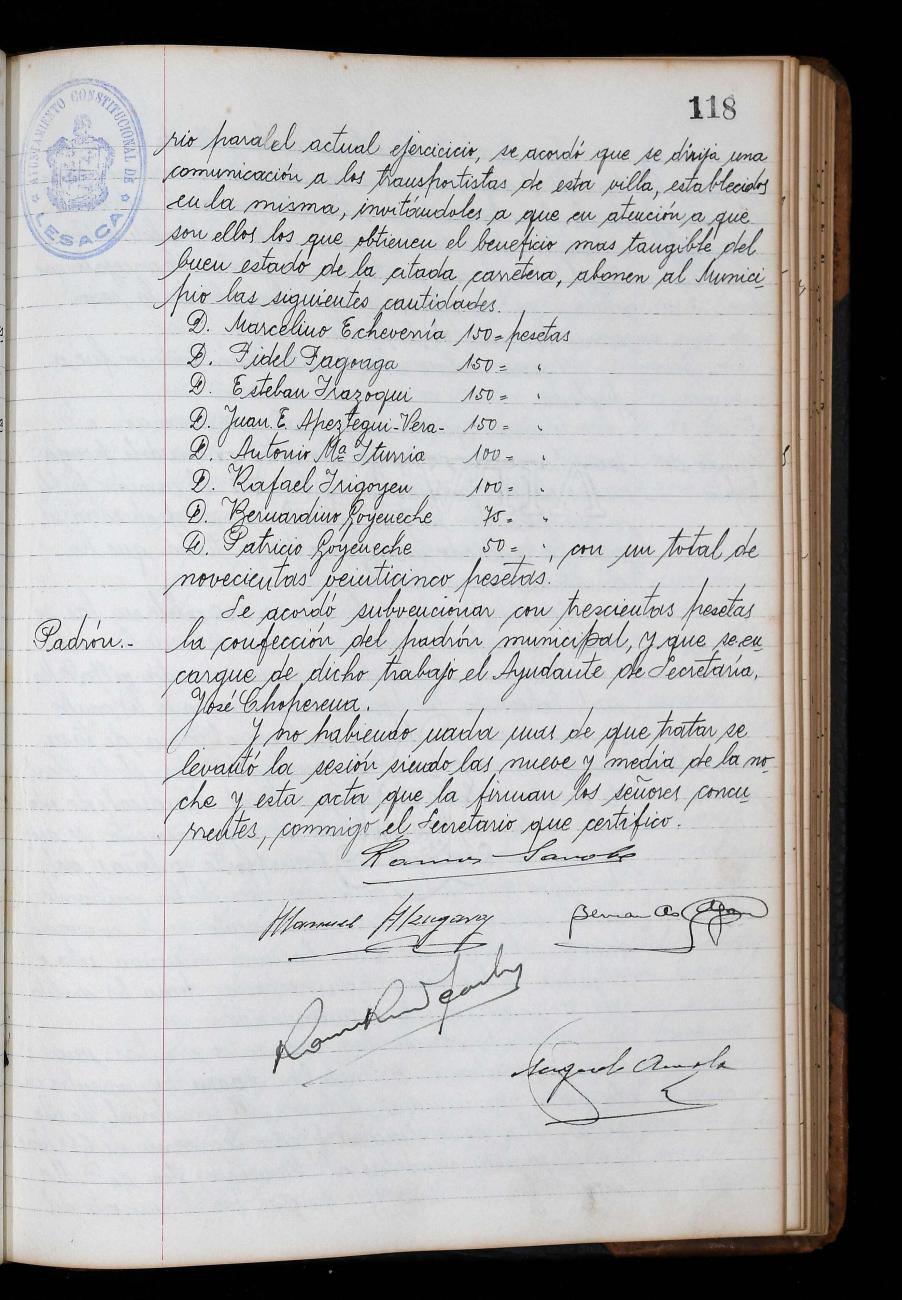 118
AYUNTAMIENTO CONSTITUCIONAL DE
LESACA
rio para el actual ejercicicio, se acordó que se dirija una
comunicación a los transportistas de esta villa, establecidos
en la misma, invitándoles a que en atención a que
son ellos los que obtienen el beneficio mas tangible del
buen estado de la citada carretera, abonen al Munici-
pio las siguientes cantidades.
D. Marcelino Echeverría 150= pesetas
D. Fidel Fagoaga 150= "
D. Esteban Irazoqui 150= "
D. Juan E. Apeztegui-Vera- 150= "
D. Antonio Mª Iturria 100= "
D. Rafael Irigoyen 100= "
D. Bernardino Goyeneche 75= "
D. Patricio Goyeneche 50= ", con un total de
novecientas veinticinco pesetas.
Se acordó subvencionar con trescientas pesetas
Padrón.- la confección del padrón municipal, y que se en
cargue de dicho trabajo el Ayudante de Secretaría,
José Choperena.
Y no habiendo nada mas de que tratar se
levantó la sesión siendo las nueve y media de la no-
che y esta acta que la firman los señores concu-
rrentes, conmigo el Secretario que certifico.
Manuel Alzugaray